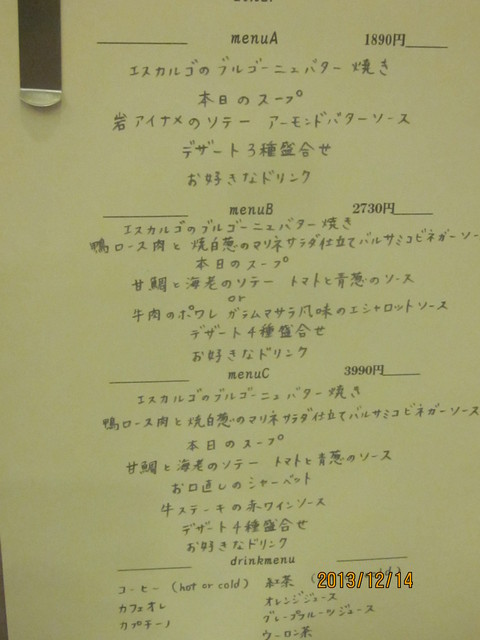 menuA 1890円
エスカルゴのブルゴーニュバター焼き
本日のスープ
岩アイナメのソテー アーモンドバターソース
デザート3種盛合せ
お好きなドリンク
menuB 2730円
エスカルゴのブルゴーニュバター焼き
鴨ロース肉と焼白葱のマリネサラダ仕立てバルサミコビネガーソー
本日のスープ
甘鯛と海老のソテー トマトと青葱のソース
or
牛肉のポワレ ガラムマサラ風味のエシャロットソース
デザート4種盛合せ
お好きなドリンク
menuC 3990円
エスカルゴのブルゴーニュバター焼き
鴨ロース肉と焼白葱のマリネサラダ仕立てバルサミコビネガーソース
本日のスープ
甘鯛と海老のソテー トマトと青葱のソース
お口直しのシャーベット
牛ステーキの赤ワインソース
デザート4種盛合せ
お好きなドリンク
drinkmenu
コーヒー (hot or cold) 紅茶
2013/12/14
カフェオレ オレンジジュース
カプチーノ グレープフルーツジュース
ウーロン茶